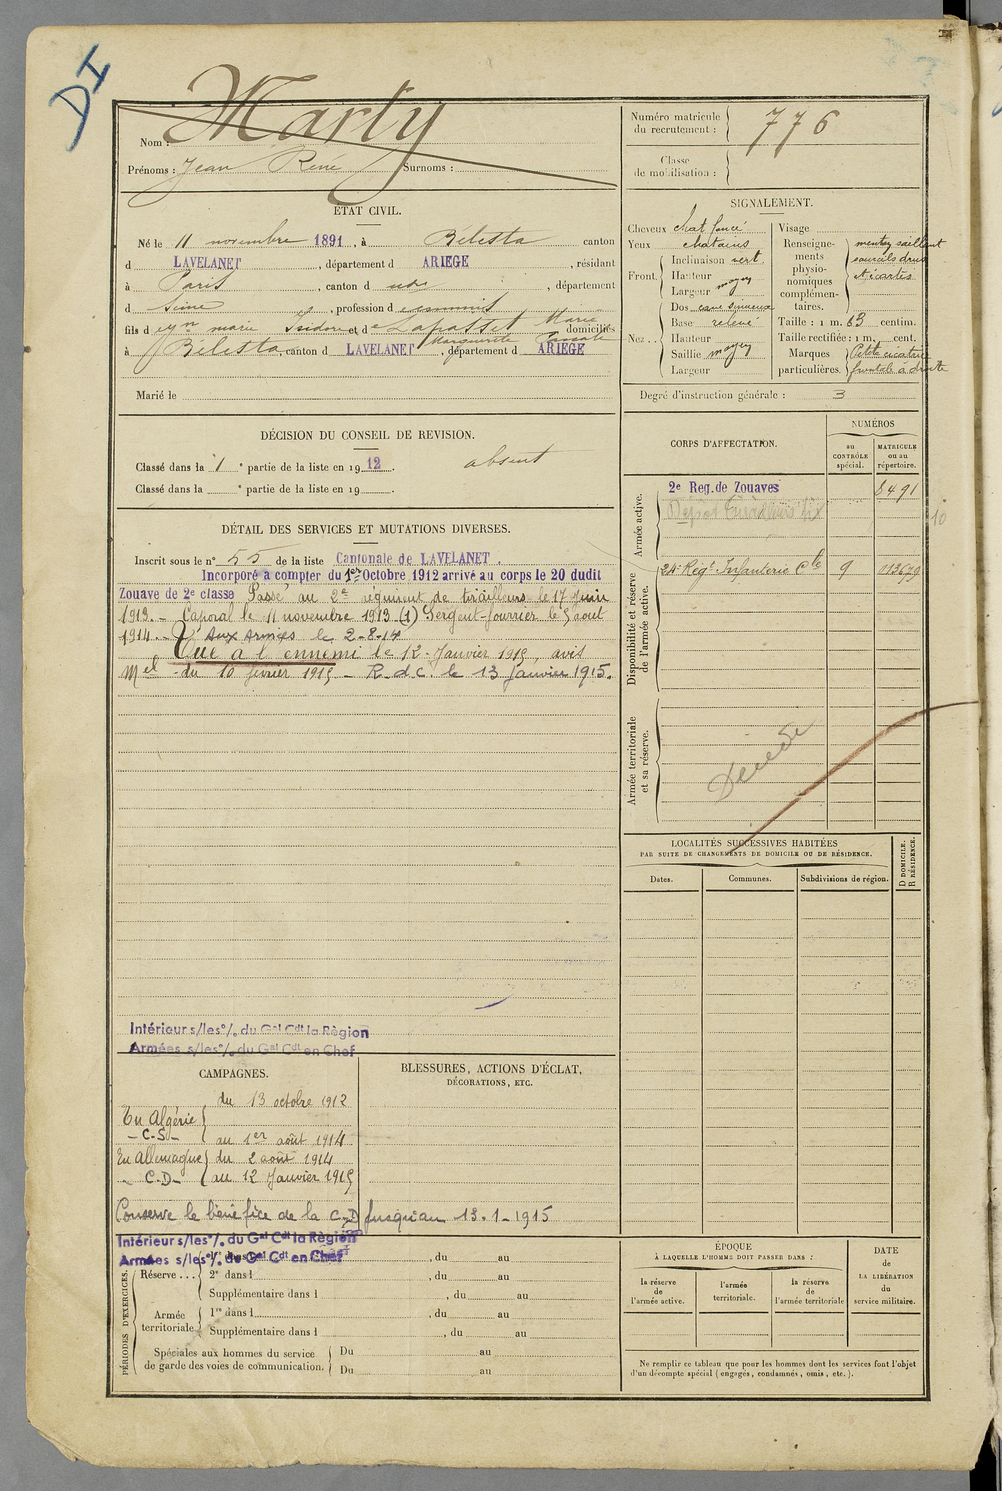 DI
Nom : Marty
Prénoms : Jean René Surnoms :
ETAT CIVIL.
Né le 11 novembre 1891, à Bélesta canton
d LAVELANET, département d ARIEGE, résidant
à Paris, canton d udit, département
d Seine, profession d commis
fils d marie Isidore et d e Lapasset Marie
Marguerite domiciliés
à Bélesta, canton d LAVELANET, département d ARIEGE
Marié le
DÉCISION DU CONSEIL DE REVISION.
Classé dans la 1 e partie de la liste en 1912. absent
Classé dans la e partie de la liste en 19
DÉTAIL DES SERVICES ET MUTATIONS DIVERSES.
Inscrit sous le n° 55 de la liste Cantonale de LAVELANET.
Incorporé à compter du 1er Octobre 1912 arrivé au corps le 20 dudit
Zouave de 2e classe Passé au 2e régiment de tirailleurs le 17 Juin
1913. - Caporal le 11 novembre 1913 (1) Sergent-fourrier le 5 août
1914. - Aux Armées le 2-8-14
Tué à l'ennemi le 12 Janvier 1915, avis
Mel du 10 février 1915 - R.d.C. le 13 Janvier 1915.
Intérieur s/les °/. du Gal Cdt la Région
Armées s/les °/. du Gal Cdt en Chef
CAMPAGNES.
du 13 octobre 1912
En Algérie
- C.S -
au 1er août 1914
En Allemagne du 2 août 1914
- C.D - au 12 Janvier 1915
Conserve le bénéfice de la C.D jusqu'au 13-1-1915
BLESSURES, ACTIONS D'ÉCLAT,
DÉCORATIONS, ETC.
Intérieur s/les °/. du Gal Cdt la Région
Armées s/les °/. du Gal Cdt en Chef
PÉRIODES D'EXERCICES.
Réserve ... 1re dans l , du au
2e dans l , du au
Supplémentaire dans l , du au
Armée territoriale 1re dans l , du au
Supplémentaire dans l , du au
Spéciales aux hommes du service Du au
de garde des voies de communication. Du au
Numéro matricule
du recrutement : 776
Classe
de mobilisation :
SIGNALEMENT.
Cheveux chat foncé
Yeux chatains
Front. Inclinaison vert.
Hauteur
Largeur moyen
Nez .. Dos cave sinueux
Base relevé
Hauteur
Saillie moyen
Largeur
Visage
Renseignements physionomiques complémentaires. menton saillant
sourcils drus
et écartés
Taille : 1 m. 63 centim.
Taille rectifiée : 1 m. cent.
Marques particulières. Petite cicatrice
frontale à droite
Degré d'instruction générale : 3
CORPS D'AFFECTATION.
NUMÉROS
au CONTRÔLE spécial.
MATRICULE ou au répertoire.
Armée active.
2e Reg. de Zouaves 8491
Disponibilité et réserve de l'armée active.
24e Régt Infanterie Cle 9 013679
Armée territoriale et sa réserve.
Décédé
LOCALITÉS SUCCESSIVES HABITÉES
PAR SUITE DE CHANGEMENTS DE DOMICILE OU DE RÉSIDENCE.
Dates. Communes. Subdivisions de région. D DOMICILE. R RÉSIDENCE.
ÉPOQUE
À LAQUELLE L'HOMME DOIT PASSER DANS :
la réserve de l'armée active.
l'armée territoriale.
la réserve de l'armée territoriale
DATE de LA LIBÉRATION du service militaire.
Ne remplir ce tableau que pour les hommes dont les services font l'objet
d'un décompte spécial (engagés, condamnés, omis, etc.).